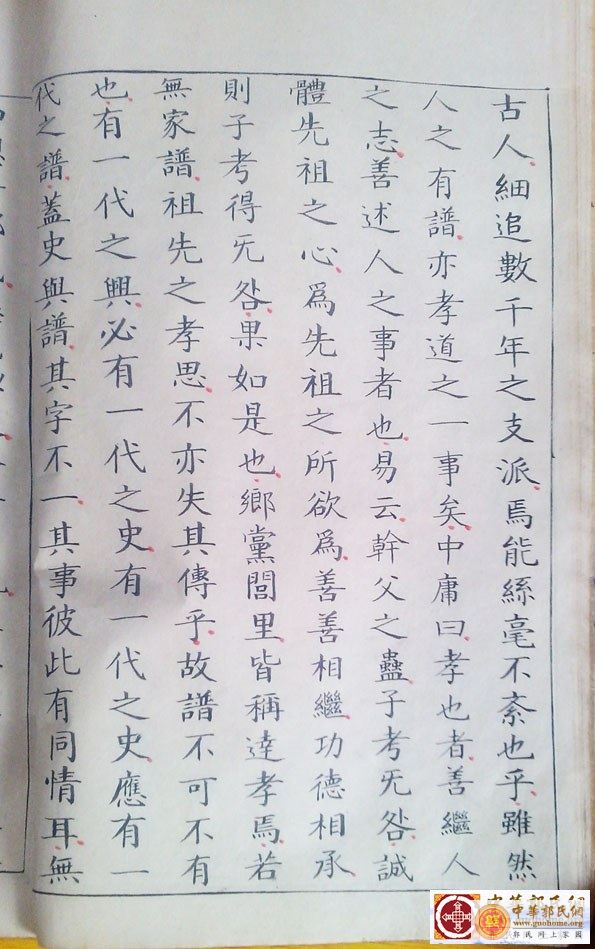 古人細追數千年之支派焉能絲毫不紊也乎雖然
人之有譜亦孝道之一事矣中庸曰孝也者善繼人
之志善述人之事者也易云幹父之蠱子考旡咎誠
體先祖之心爲先祖之所欲爲善善相繼功德相承
則子考得旡咎果如是也鄉黨閭里皆稱達孝焉若
無家譜祖先之孝思不亦失其傳乎故譜不可不有
也有一代之興必有一代之史有一代之史應有一
代之譜蓋史與譜其字不一其事彼此有同情耳無
中華郭氏網
www.guohome.org
郭氏網上家園